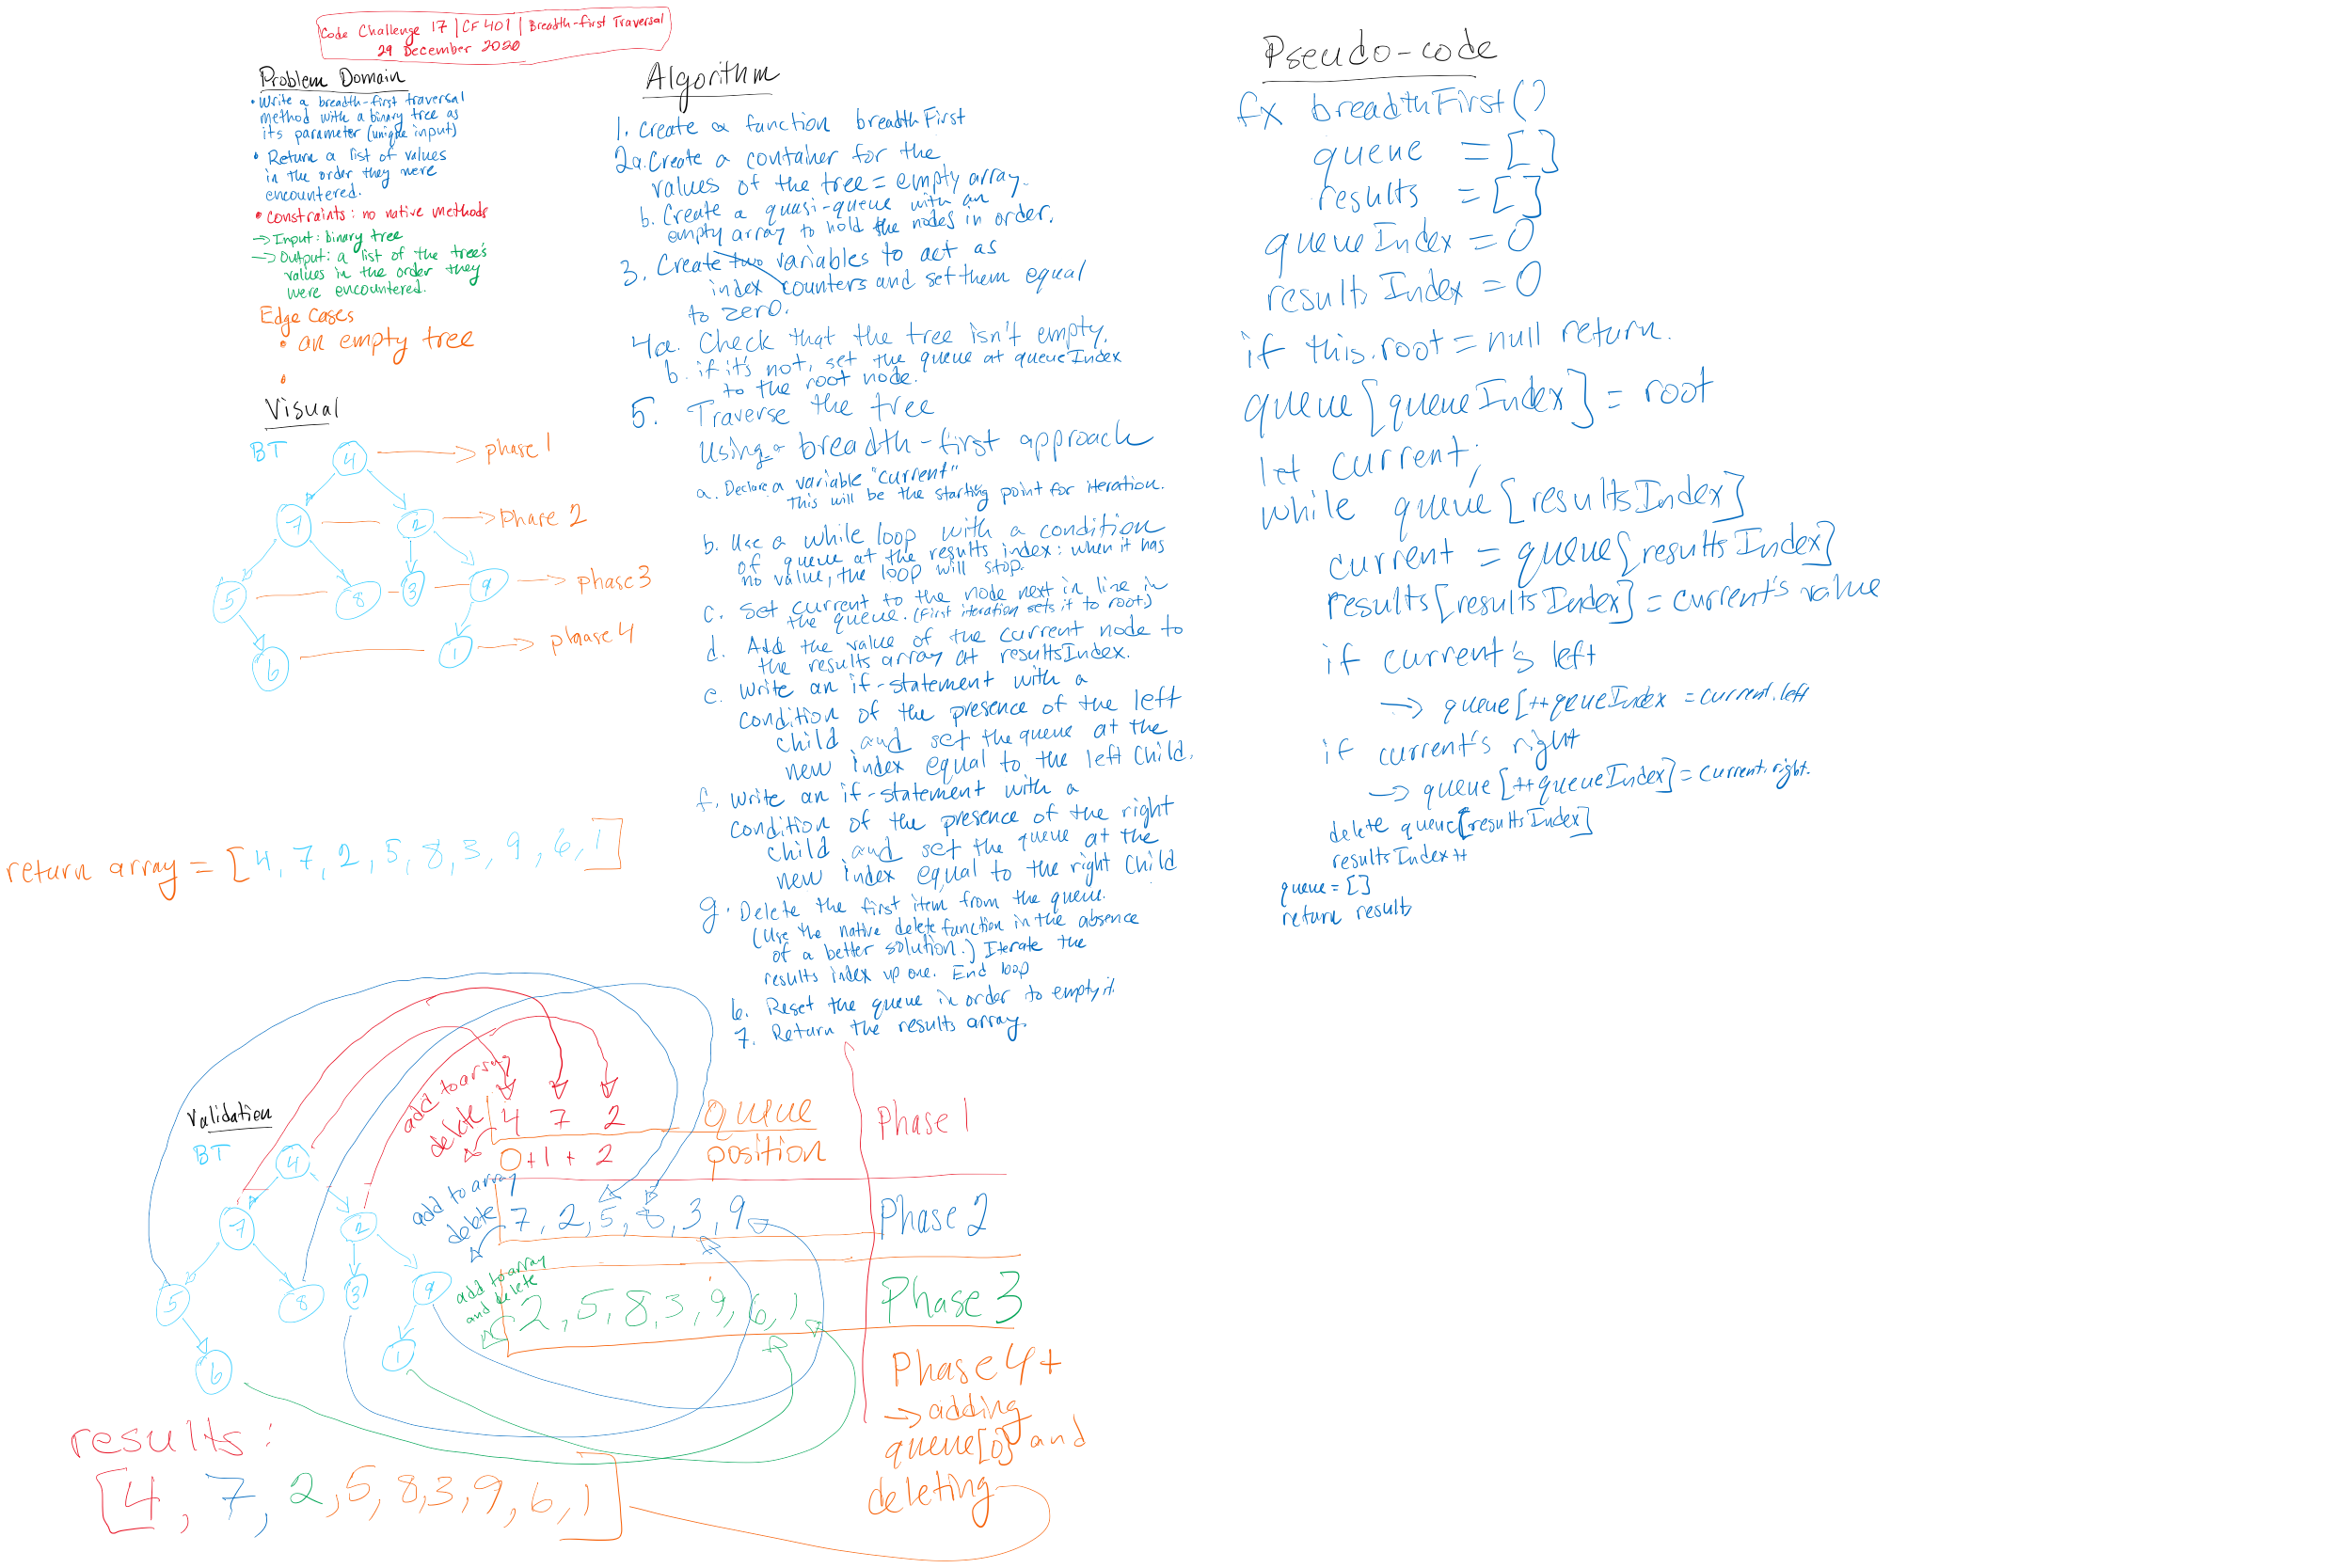 Code Challenge 17 | CF 401 | Breadth-first Traversal
29 December 2020
Problem Domain
• Write a breadth-first traversal
method with a binary tree as
its parameter (unique input)
• Return a list of values
in the order they were
encountered.
• Constraints: no native methods
→ Input: binary tree
→ Output: a list of the tree's
values in the order they
were encountered.
Edge Cases
• an empty tree
•
Visual
BT
4 → phase 1
7 2 → Phase 2
5 8 3 9 → phase 3
6 1 → phase 4
return array = [4, 7, 2, 5, 8, 3, 9, 6, 1]
Algorithm
1. Create a function breadthFirst
2a. Create a container for the
values of the tree = empty array.
b. Create a quasi-queue with an
empty array to hold the nodes in order.
3. Create two variables to act as
index counters and set them equal
to zero.
4a. Check that the tree isn't empty.
b. if it's not, set the queue at queueIndex
to the root node.
5. Traverse the tree
Using a breadth-first approach
a. Declare a variable "current"
This will be the starting point for iteration.
b. Use a while loop with a condition
of queue at the results index: when it has
no value, the loop will stop.
c. Set current to the node next in line in
the queue. (First iteration sets it to root.)
d. Add the value of the current node to
the results array at resultsIndex.
e. Write an if-statement with a
condition of the presence of the left
child and set the queue at the
new index equal to the left child.
f. Write an if-statement with a
condition of the presence of the right
child and set the queue at the
new index equal to the right child
g. Delete the first item from the queue.
(Use the native delete function in the absence
of a better solution.) Iterate the
results index up one. End loop
6. Reset the queue in order to empty it.
7. Return the results array.
Pseudo-code
fx breadthFirst()
queue = []
results = []
queueIndex = 0
results Index = 0
if this.root = null return.
queue[queueIndex] = root
let current;
while queue[resultsIndex]
current = queue[resultsIndex]
results[resultsIndex] = current's value
if current's left
→ queue[++queueIndex = current.left
if current's right
→ queue[++queueIndex] = current.right.
delete queue[resultsIndex]
resultsIndex++
queue = []
return results
Validation
BT
4
7 2
5 8 3 9
6 1
add to array
delete
4 7 2
queue
0+1+2
position
Phase 1
add to array
delete
7, 2, 5, 8, 3, 9
Phase 2
add to array
and delete
2, 5, 8, 3, 9, 6, 1
Phase 3
Phase 4+
→ adding
queue[0] and
deleting
results:
[4, 7, 2, 5, 8, 3, 9, 6, 1]